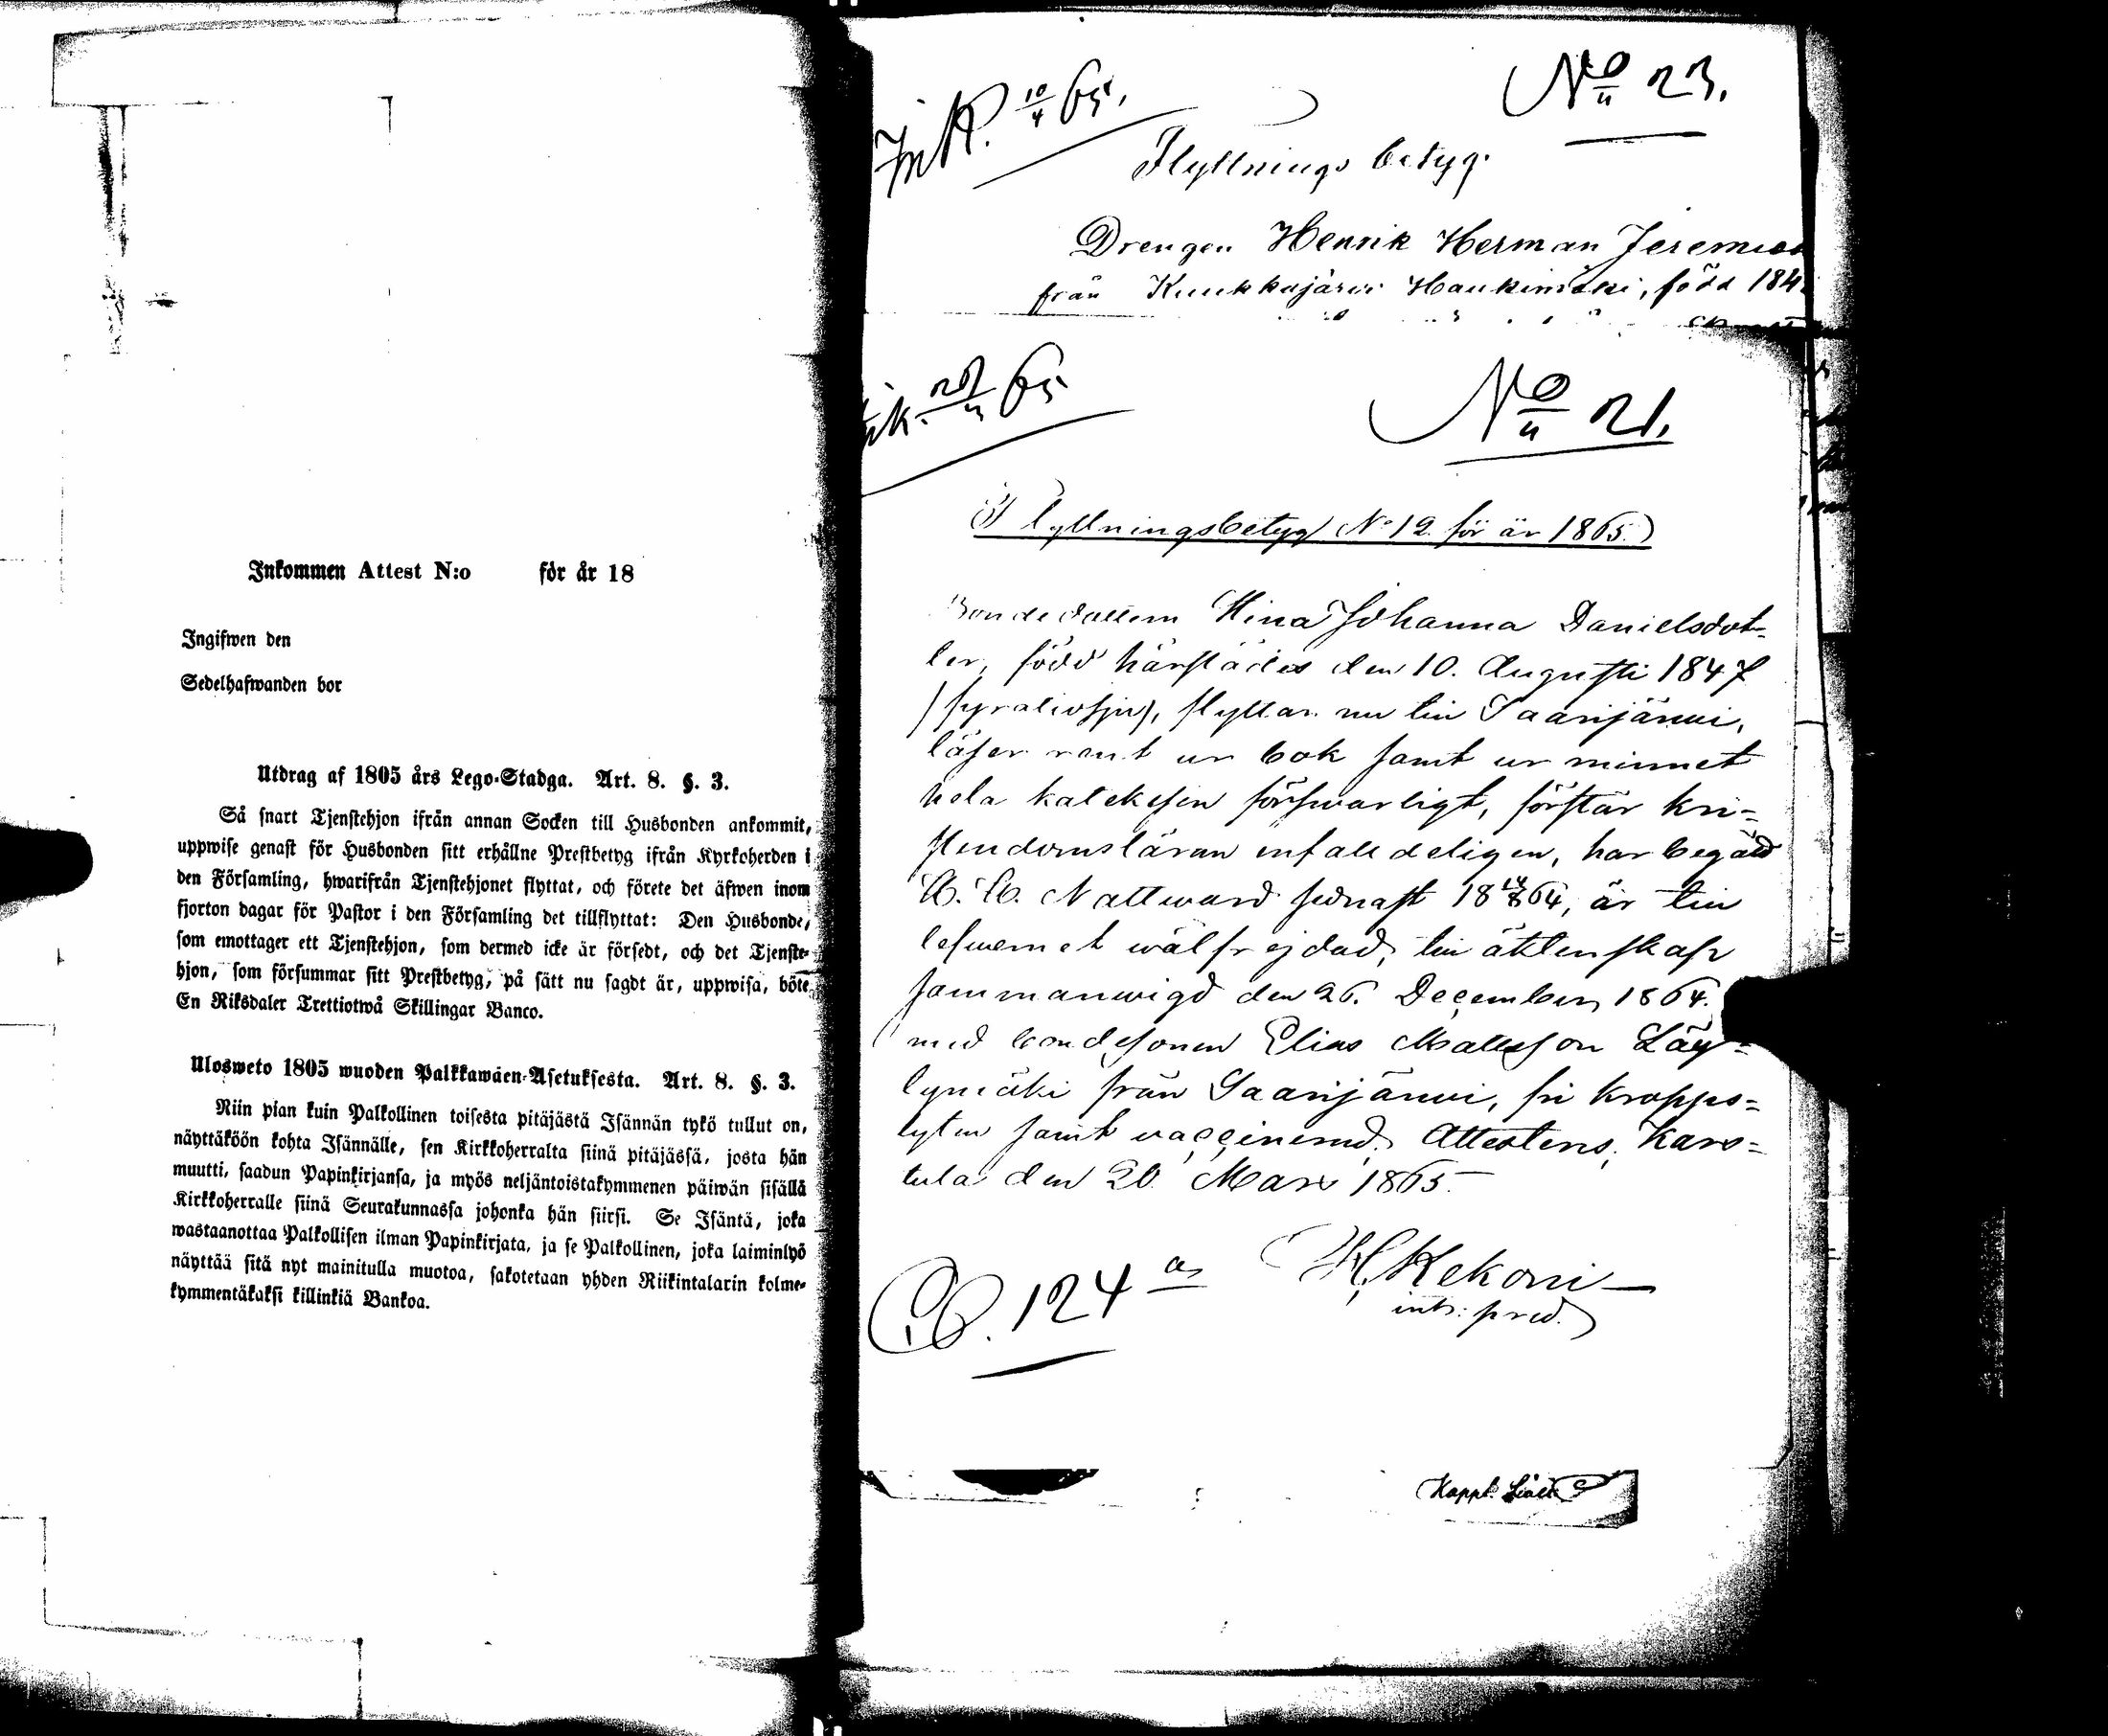 Inkommen Attest N:o för år 18
Ingifwen den
Sedelhafwanden bor
Utdrag af 1805 års Lego-Stadga. Art. 8. §. 3.
Så snart Tjenstehjon ifrån annan Socken till Husbonden ankommit,
uppwise genast för Husbonden sitt erhållne Prestbetyg ifrån Kyrkoherden i
den Församling, hwarifrån Tjenstehjonet flyttat, och förete det äfwen inom
fjorton dagar för Pastor i den Församling det tillflyttat: Den Husbonde,
som emottager ett Tjenstehjon, som dermed icke är försedt, och det Tjenste-
hjon, som försummar sitt Prestbetyg, på sätt nu sagdt är, uppwisa, böte
En Riksdaler Trettiotwå Skillingar Banco.
Ulosweto 1805 wuoden Palkkawäen-Asetuksesta. Art. 8. §. 3.
Niin pian kuin Palkollinen toisesta pitäjästä Isännän tykö tullut on,
näyttäköön kohta Isännälle, sen Kirkkoherralta siinä pitäjässä, josta hän
muutti, saadun Papinkirjansa, ja myös neljäntoistakymmenen päiwän sisällä
Kirkkoherralle siinä Seurakunnassa johonka hän siirsi. Se Isäntä, joka
wastaanottaa Palkollisen ilman Papinkirjata, ja se Palkollinen, joka laiminlyö
näyttää sitä nyt mainitulla muotoa, sakotetaan yhden Riikintalarin kolme-
kymmentäkaksi killinkiä Bankoa.
Ink. 10/4 65.
No 23.
Flyttnings betyg.
Drengen Henrik Herman Jeremias
från Kuukkajärvi Haukimäki, född 184
Ink. 65
No 21.
Flyttningsbetyg No 12 för år 1865.
Bondedottern Stina Johanna Danielsdot-
ter, född härstädes den 10. Augusti 1847
(fyratiosju), flyttar nu till Saarijärwi,
läser rent ur bok samt ur minnet
hela katekesen försvarligt, förstår kri-
stendomsläran enfalldeligen, har begått
H. H. Nattward sednast 18 14/8 64, är till
lefwernet wälfrejdad, till äktenskap
sammanwigd den 26. December 1864.
med bondesonen Elias Mattsson Läy-
lymäki från Saarijärwi, fri kropps-
lyten samt vaccinerad, Attesterar, Kars-
tula den 20 Mars 1865.
K. Kekoni
intr: pred.
C.B. 124 as
Kappl.